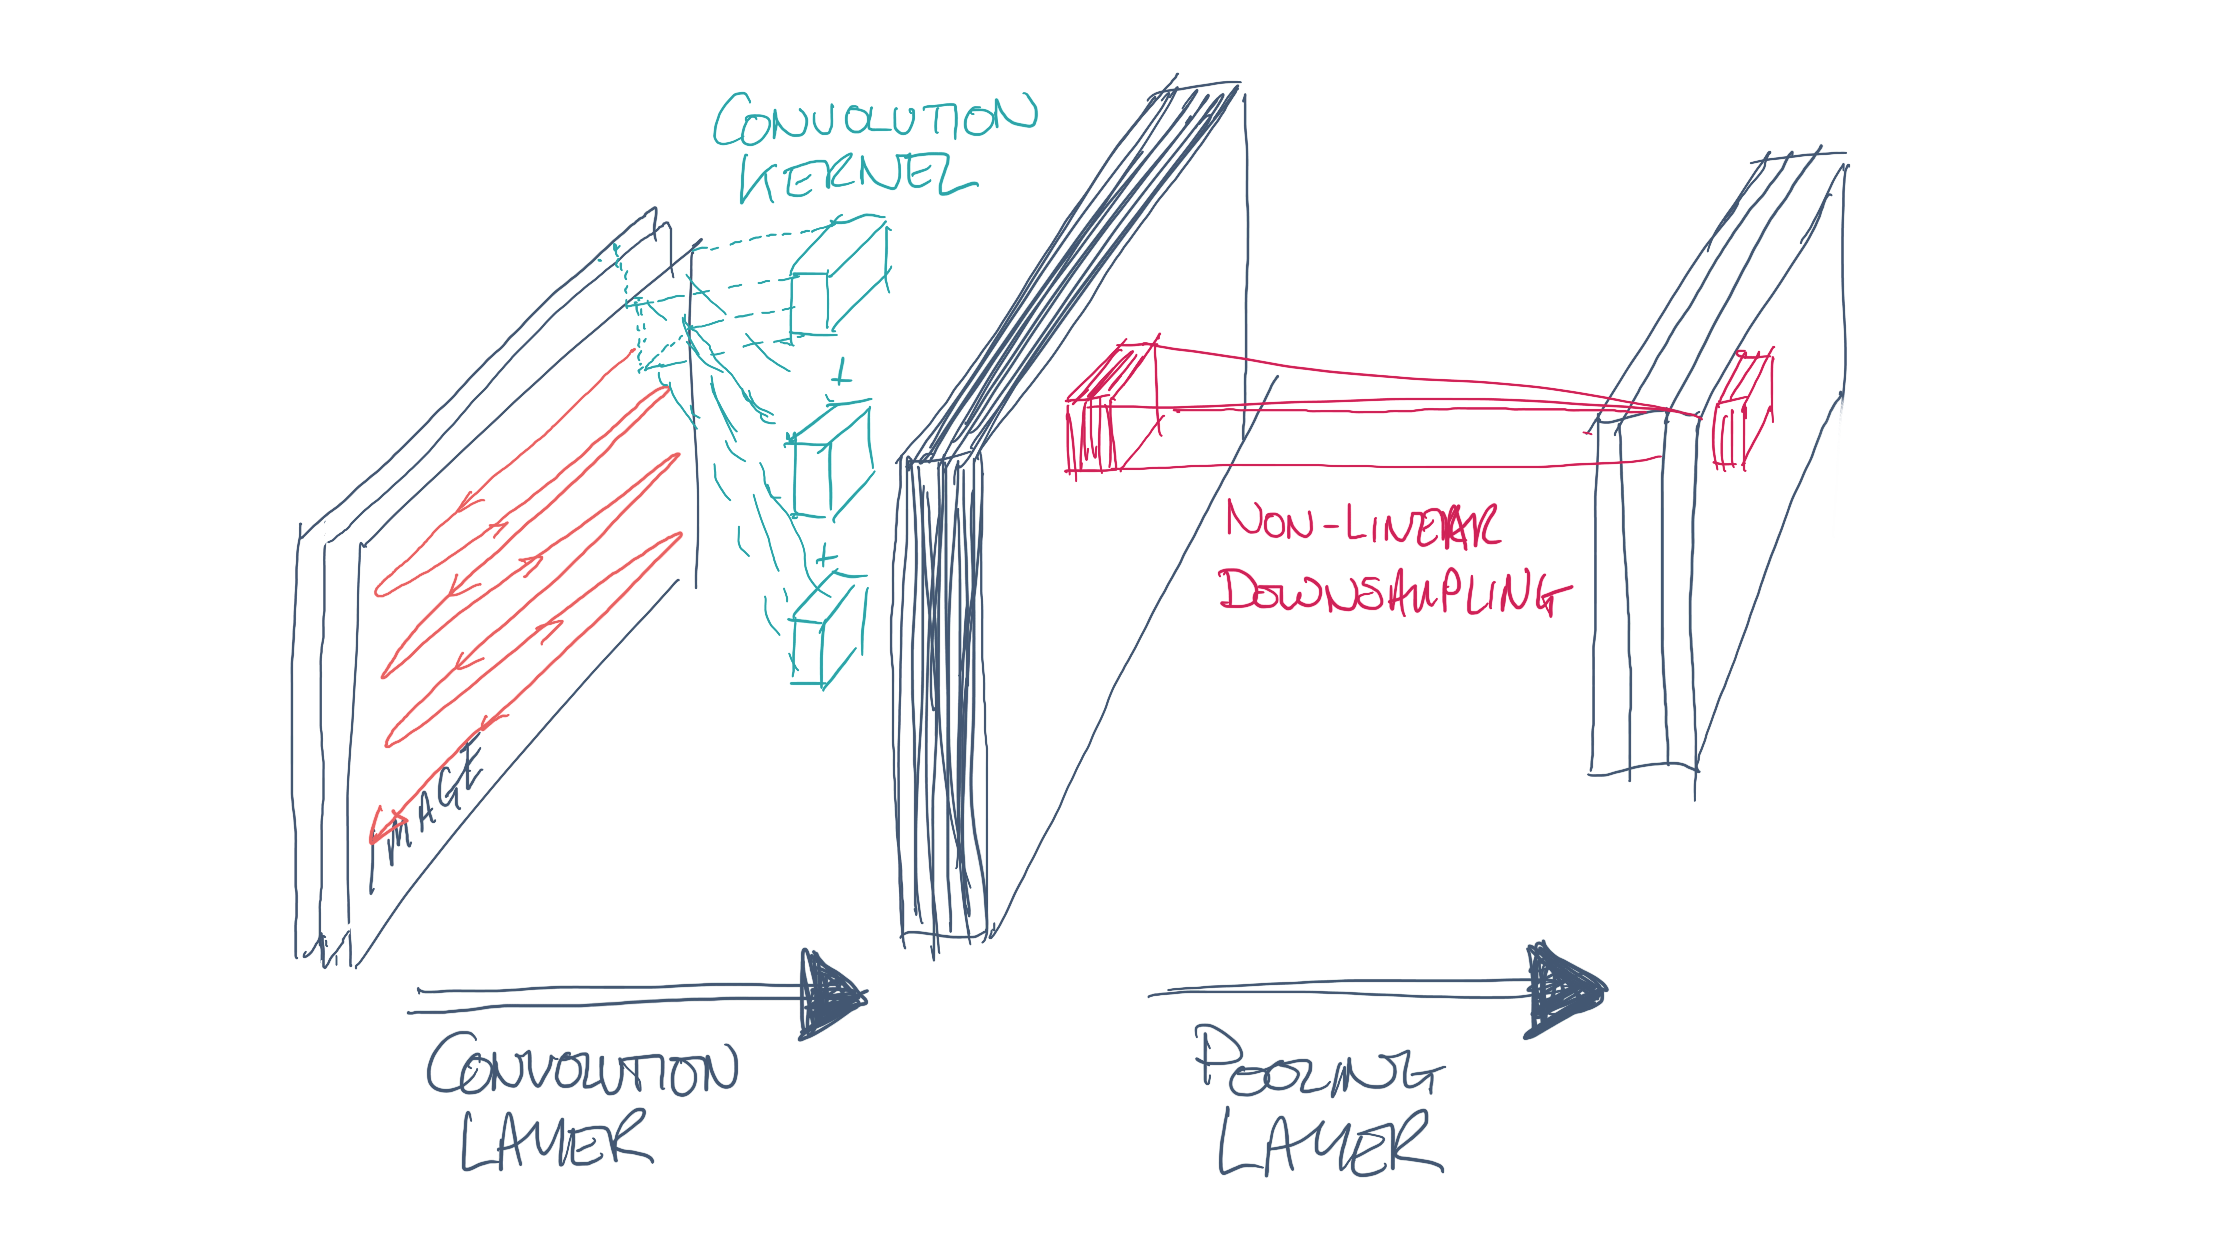 CONVOLUTION
KERNEL
+
+
IMAGE
NON-LINEAR
DOWNSAMPLING
CONVOLUTION
LAYER
POOLING
LAYER